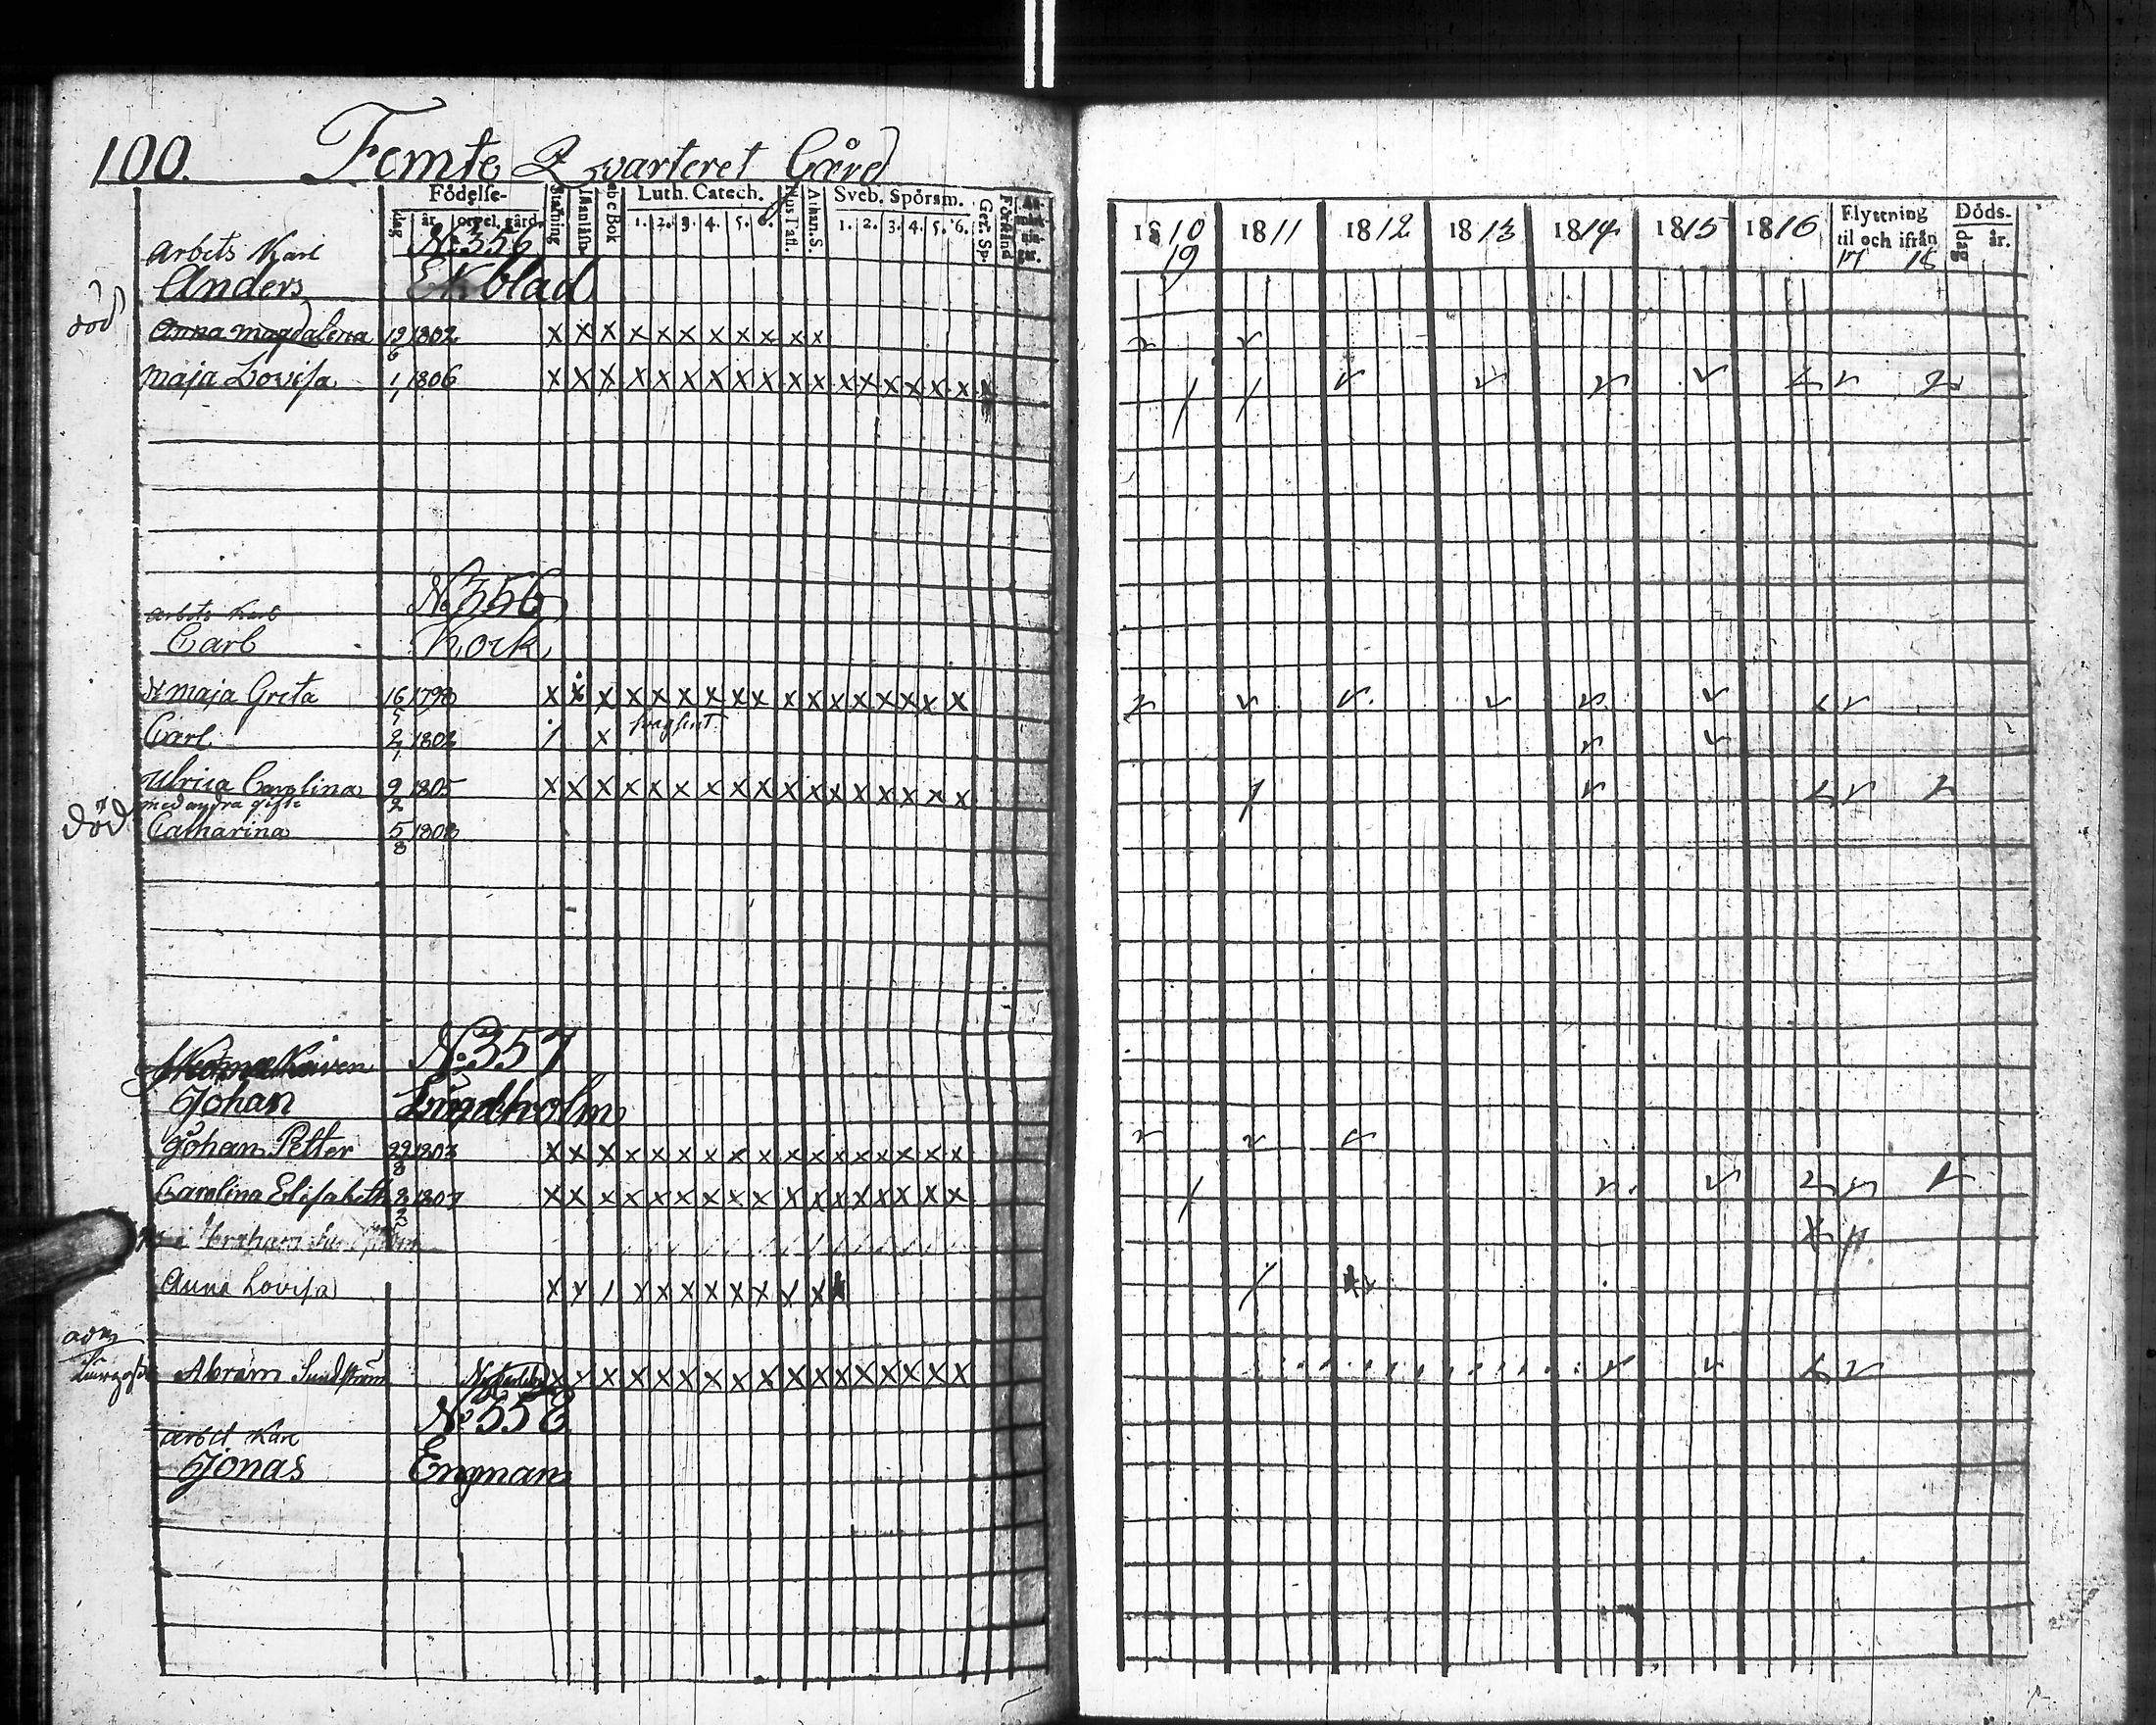 100. Femte Qvarteret Gård
Födelse- Stafning Abc Bok Luth. Catech. Athan. S. Sveb. Spörsm. Ger. Sp. Förstånd Anmärkningar.
dag år. ort el. gård. 1. 2. 3. 4. 5. 6. 1. 2. 3. 4. 5. 6.
1810 1811 1812 1813 1814 1815 1816 Flyttning til och ifrån Döds-
19 17 18 dag år.
Arbets Karl No 356
Anders Ekblad
död Anna Magdalena 12/6 1802 x x x x x x x x x x x
Maja Lovisa 1/1 1806 x x x x x x x x x x x x x x x x x x
arbets Karl No 356
Carl Kock
Maja Greta 16/5 1798 x x x x x x x x x x x x x x x x x
Carl 2/1 1802 / x
Ulrica Carolina 9/2 1805 x x x x x x x x x x x x x x x x x
med andra gifte
död Catharina 5/8 1808
No 357
Johan Lundholm
Johan Petter 22/8 1803 x x x x x x x x x x x x x x x x x
Carolina Elisabeth 8/2 1807 x x x x x x x x x x x x x x x x x
Anna Lovisa
Abram Sundström x x x x x x x x x x x x x x x x x
No 358
arbet Karl
Jonas Engman